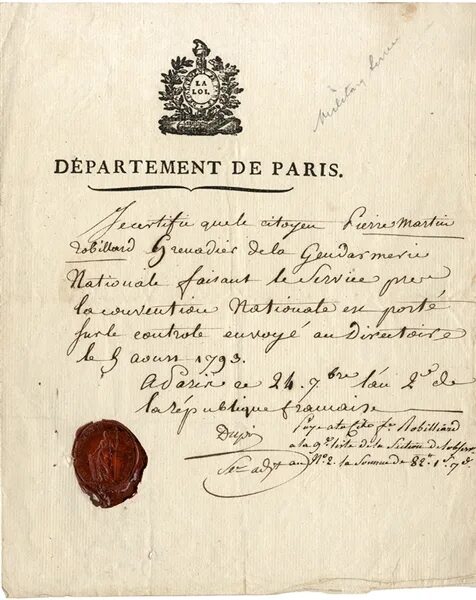 LA
LOI.
DÉPARTEMENT DE PARIS.
Je certifie que le citoyen Pierre Martin
Robillard Grenadier de la Gendarmerie
Nationale faisant le Service près
la convention Nationale est porté
sur le controle envoyé au Directoire
le 5 aoust 1793.
A Paris ce 24 7bre l'an 2e de
la république francaise
Payé au Cito. Robilliard
a la 9e liste de la Section de
Sre adjt au No 2. la Somme de 82